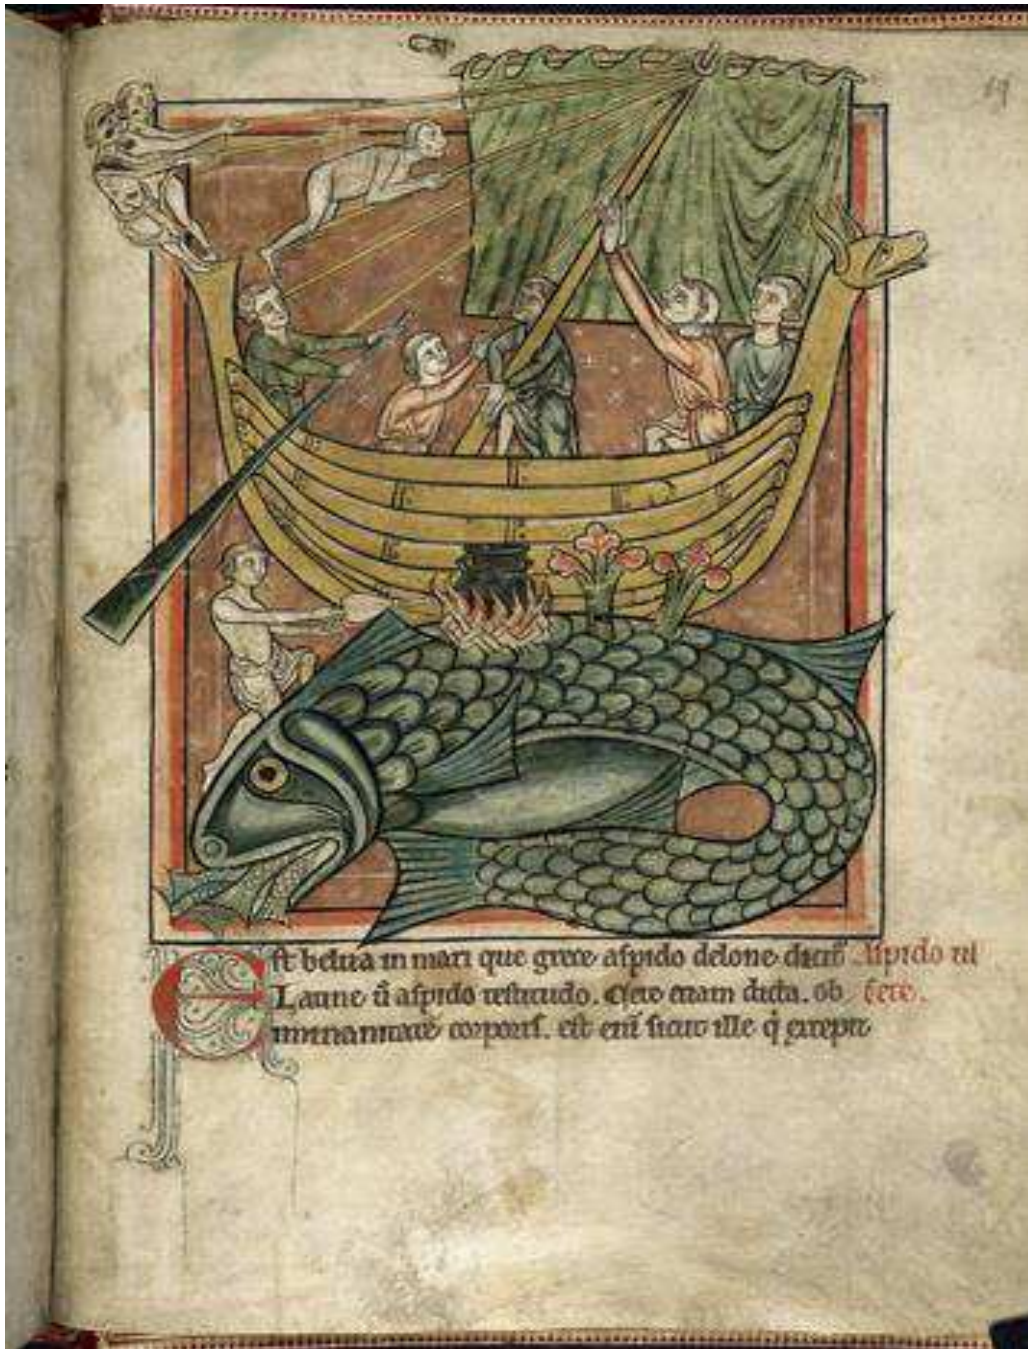 Est belua in mari que grece aspido delone dicit̃ Aspido
Latine ũ aspido testudo. Cete etiam dicta. ob cete.
inmanitatẽ corporis. est enĩ sicut ille q̇ excepit